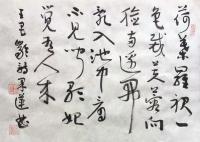 荷葉羅裙一
色裁芙蓉向
臉兩邊開
亂入池中看
不見聞歌始
覺有人來
王昌齡詩采蓮曲